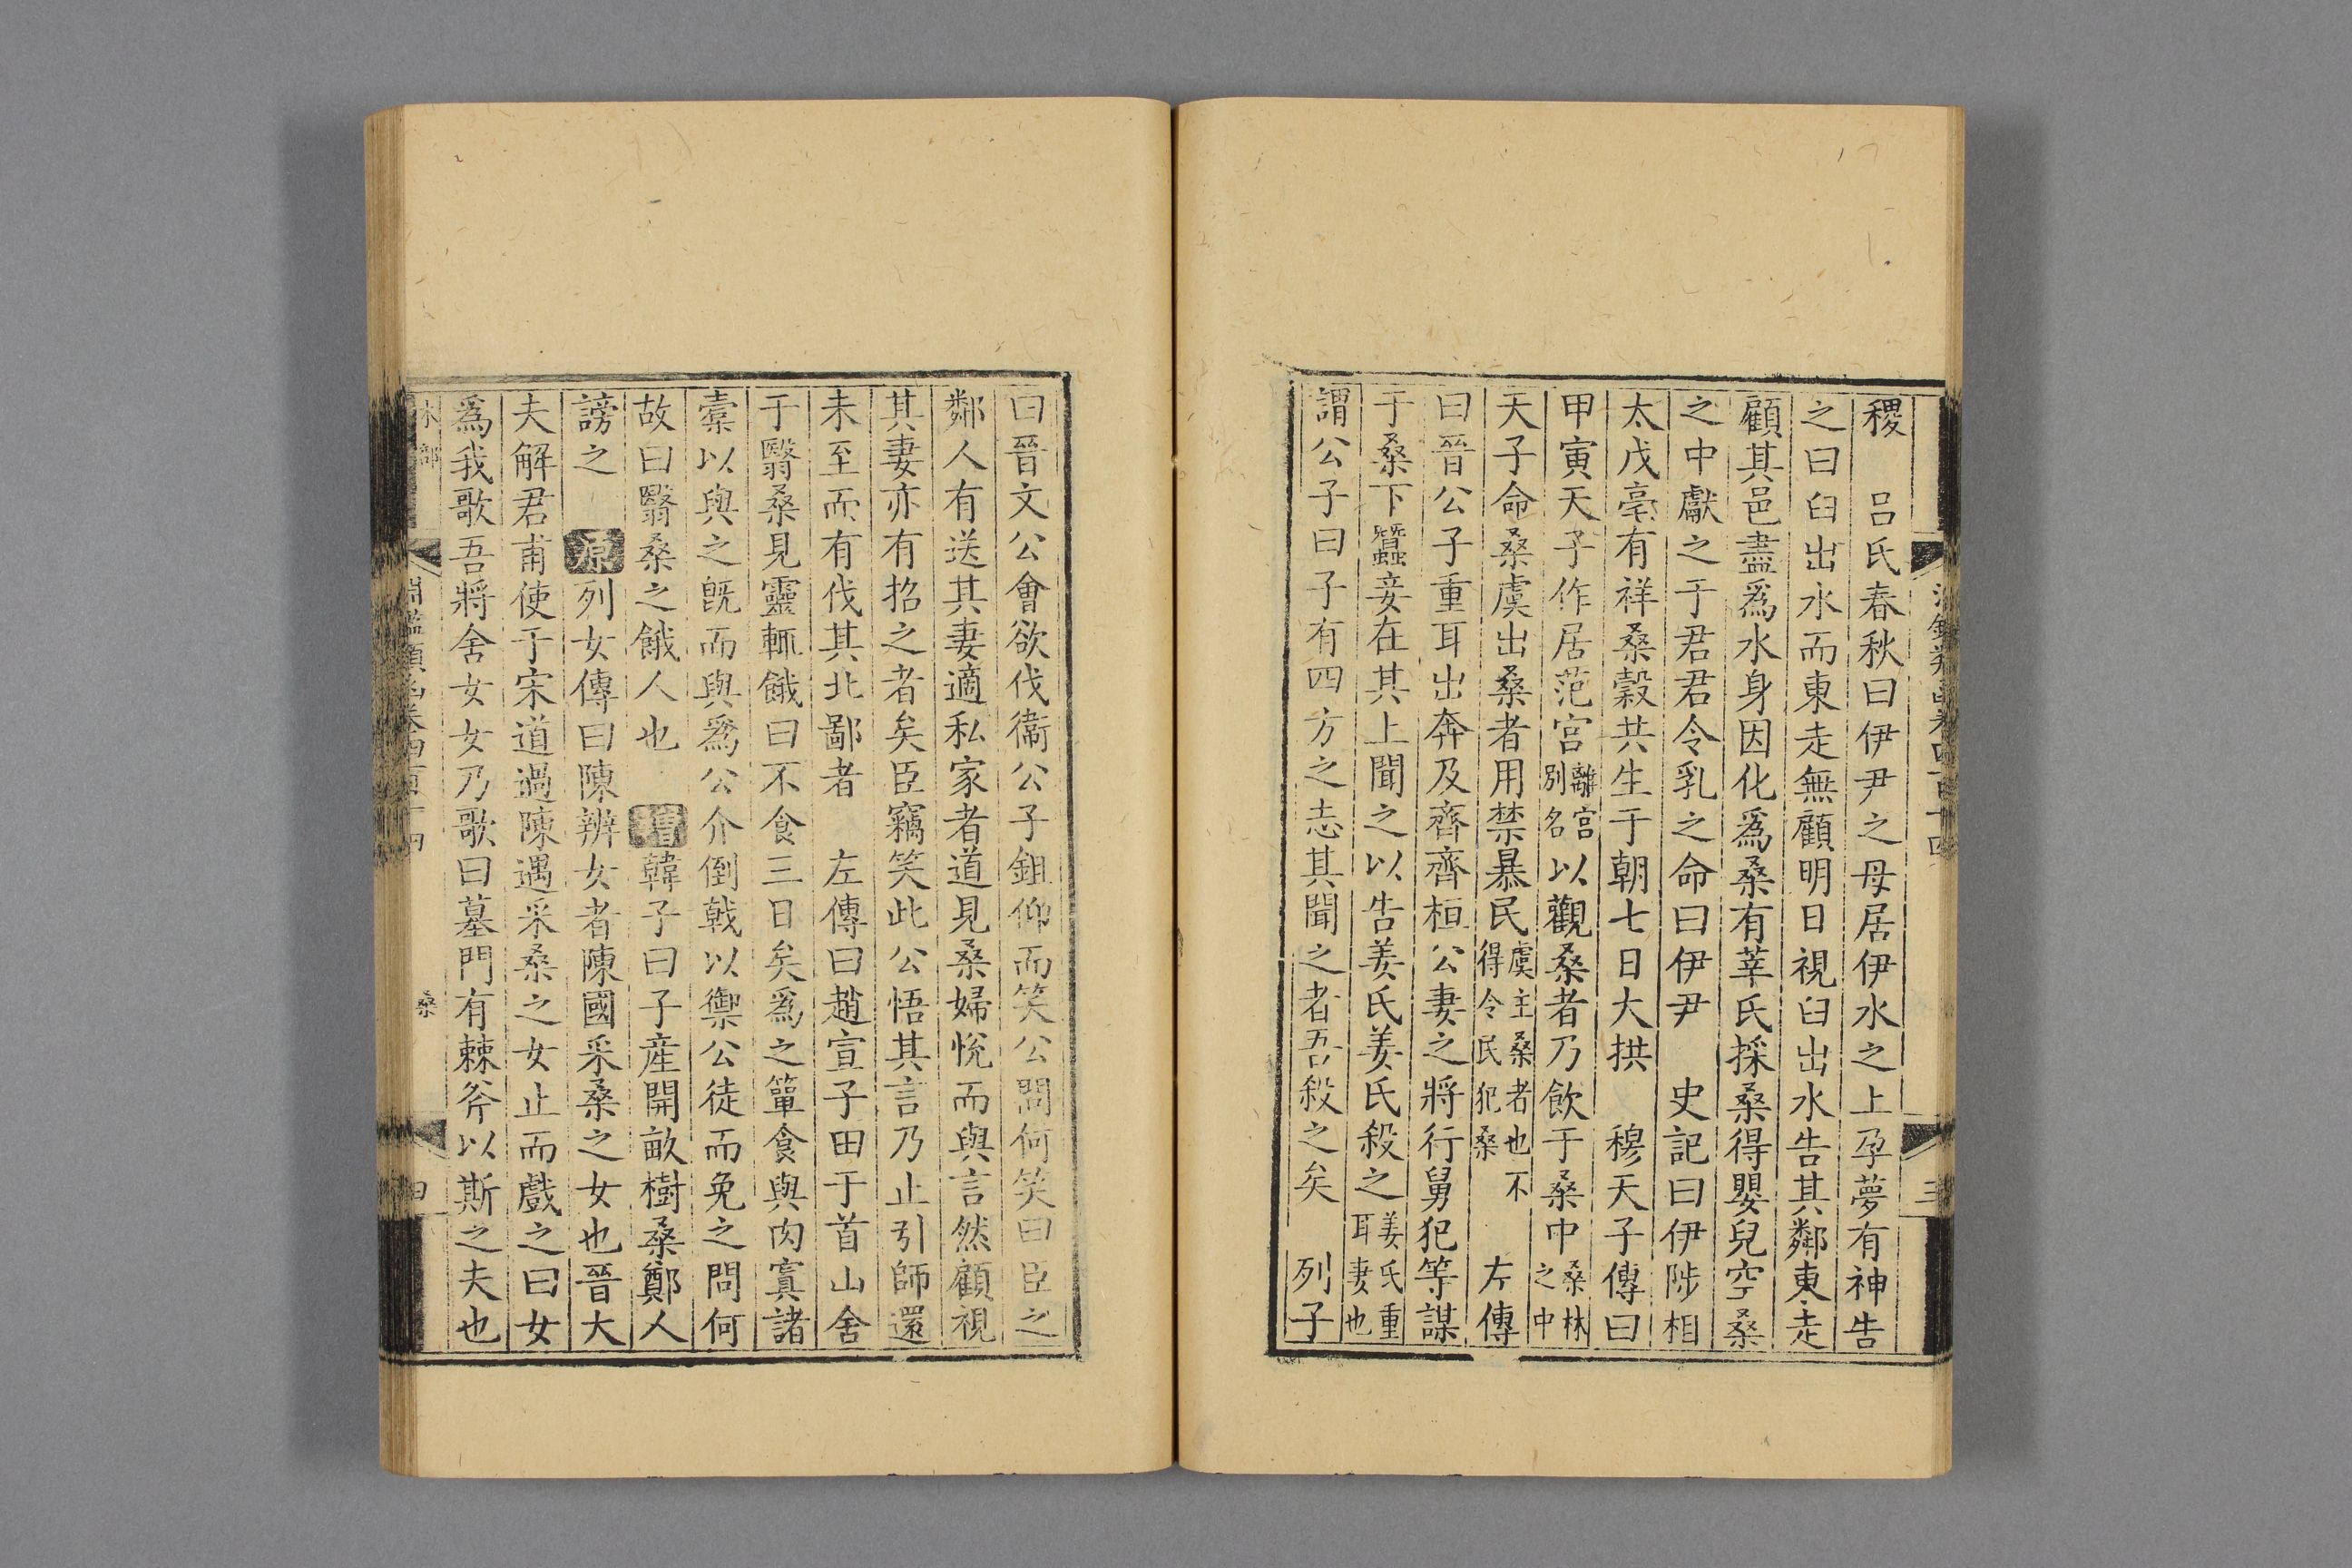 稷　吕氏春秋曰伊尹之母居伊水之上孕夢有神告
之曰臼出水而東走無顧明日視臼出水告其鄰東走
顧其邑盡爲水身因化爲桑有莘氏採桑得嬰兒空桑
之中獻之于君君令乳之命曰伊尹　史記曰伊陟相
太戊亳有祥桑榖共生于朝七日大拱　穆天子傳曰
甲寅天子作居范宫離宫别名以觀桑者乃飲于桑中桑林之中
天子命桑虞出桑者用禁暴民虞主桑者也不得令民犯桑　左傳
曰晉公子重耳出奔及齊齊桓公妻之將行舅犯等謀
于桑下蠶妾在其上聞之以告姜氏姜氏殺之姜氏重耳妻也
謂公子曰子有四方之志其聞之者吾殺之矣　列子
曰晉文公會欲伐衞公子鉏仰而笑公問何笑曰臣之
鄰人有送其妻適私家者道見桑婦悅而與言然顧視
其妻亦有招之者矣臣竊笑此公悟其言乃止引師還
未至而有伐其北鄙者　左傳曰趙宣子田于首山舍
于翳桑見靈輒餓曰不食三日矣爲之簞食與肉寘諸
橐以與之旣而與爲公介倒戟以禦公徒而免之問何
故曰翳桑之餓人也　增韓子曰子産開畝樹桑鄭人
謗之　原列女傳曰陳辨女者陳國采桑之女也晉大
夫解君甫使于宋道過陳遇采桑之女止而戲之曰女
爲我歌吾將舍女女乃歌曰墓門有棘斧以斯之夫也
木部
淵鑑類函卷四百十四
桑